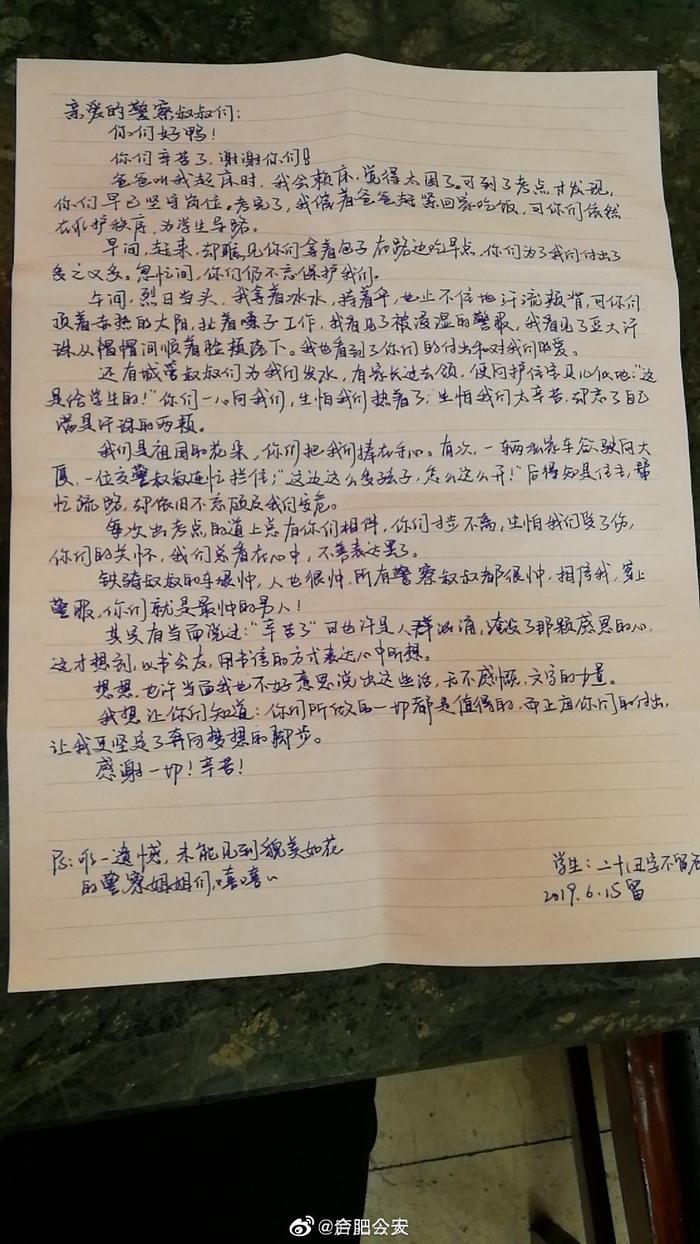 亲爱的警察叔叔们：
你们好鸭！
你们辛苦了，谢谢你们！
爸爸叫我起床时，我会赖床，觉得太困了。可到了考点才发现，
你们早已坚守岗位。考完了，我催着爸爸赶紧回家吃饭，可你们依然
在维护秩序，为学生导路。
早间，赶来，却瞧见你们拿着包子在路边吃早点，你们为了我们付出了
多之又多。忽忙间，你们仍不忘保护我们。
午间，烈日当头，我拿着冰水，持着伞，也止不住地汗流颊背，可你们
顶着赤热的太阳，扯着嗓子工作，我看见了被浸湿的警服，我看见了豆大汗
珠从帽帽间顺着脸颊落下。我也看到了你们的付出和对我们的爱。
还有城管叔叔们为我们发水，有家长过去领，便向护住宝贝儿似地："这
是给学生的！"你们一心向我们，生怕我们热着了，生怕我们太辛苦，却忘了自己
满是汗珠的两颊。
我们是祖国的花朵，你们把我们捧在手心。有次，一辆私家车欲驶向大
厦，一位交警叔叔连忙拦住；"这边这么多孩子，怎么这么开！"后得知是住主，帮
忙疏路，却依旧不忘顾及我们安危。
每次出考点的道上总有你们相伴，你们寸步不离，生怕我们受了伤，
你们的关怀，我们总看在心中，不善表达罢了。
铁骑叔叔的车很帅，人也很帅，所有警察叔叔都很帅，相信我，穿上
警服，你们就是最帅的男人！
其实有当面说过："辛苦了"可也许是人群汹涌，淹没了那颗感恩的心，
这才想到，以书会友，用书信的方式表达心中所想。
想想，也许当面我也不好意思说出这些话，无不感慨，文字的力量。
我想让你们知道：你们所做的一切都是值得的，而正由你们的付出，
让我更坚定了奔向梦想的脚步。
感谢一切！辛苦！
PS：唯一遗憾，未能见到貌美如花
的警察姐姐们，嘻嘻~
学生：二十八丑字不留名
2019.6.15留
@合肥公安